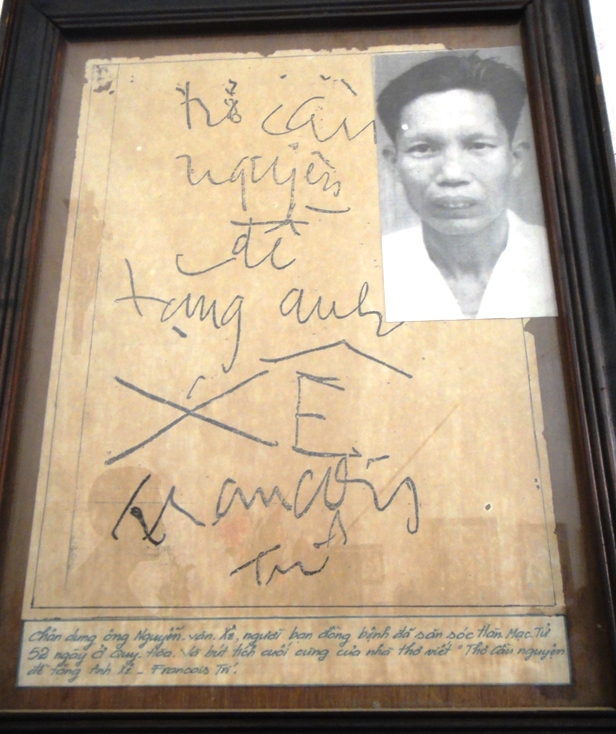 thơ cầu
nguyện
để
tặng anh
XÊ
Francois
Trí
Chân dung ông Nguyễn. văn. Xê, người bạn đồng bệnh đã săn sóc Hàn. Mạc. Tử
52 ngày ở Quy. Hòa. Và bút tích cuối cùng của nhà thơ viết "Thơ Cầu nguyện
để tặng Anh Xê - Francois Trí".